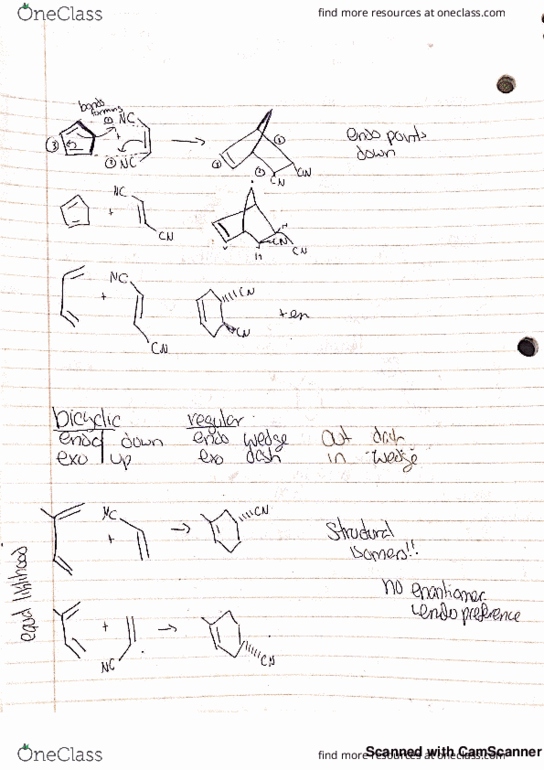 OneClass
find more resources at oneclass.com
bonds
forming
NC
NC
CN
CN
endo points
down
NC
+
CN
H
CN
CN
NC
+
CN
CN
CN
+ en
bicyclic
regular
endo down
endo wedge
out dash
exo up
exo dash
in wedge
NC
+
CN
Structural
isomers!!
equal liklihood
no enantiomer
endo preference
+
NC
CN
OneClass
find more resources at oneclass.com
Scanned with CamScanner